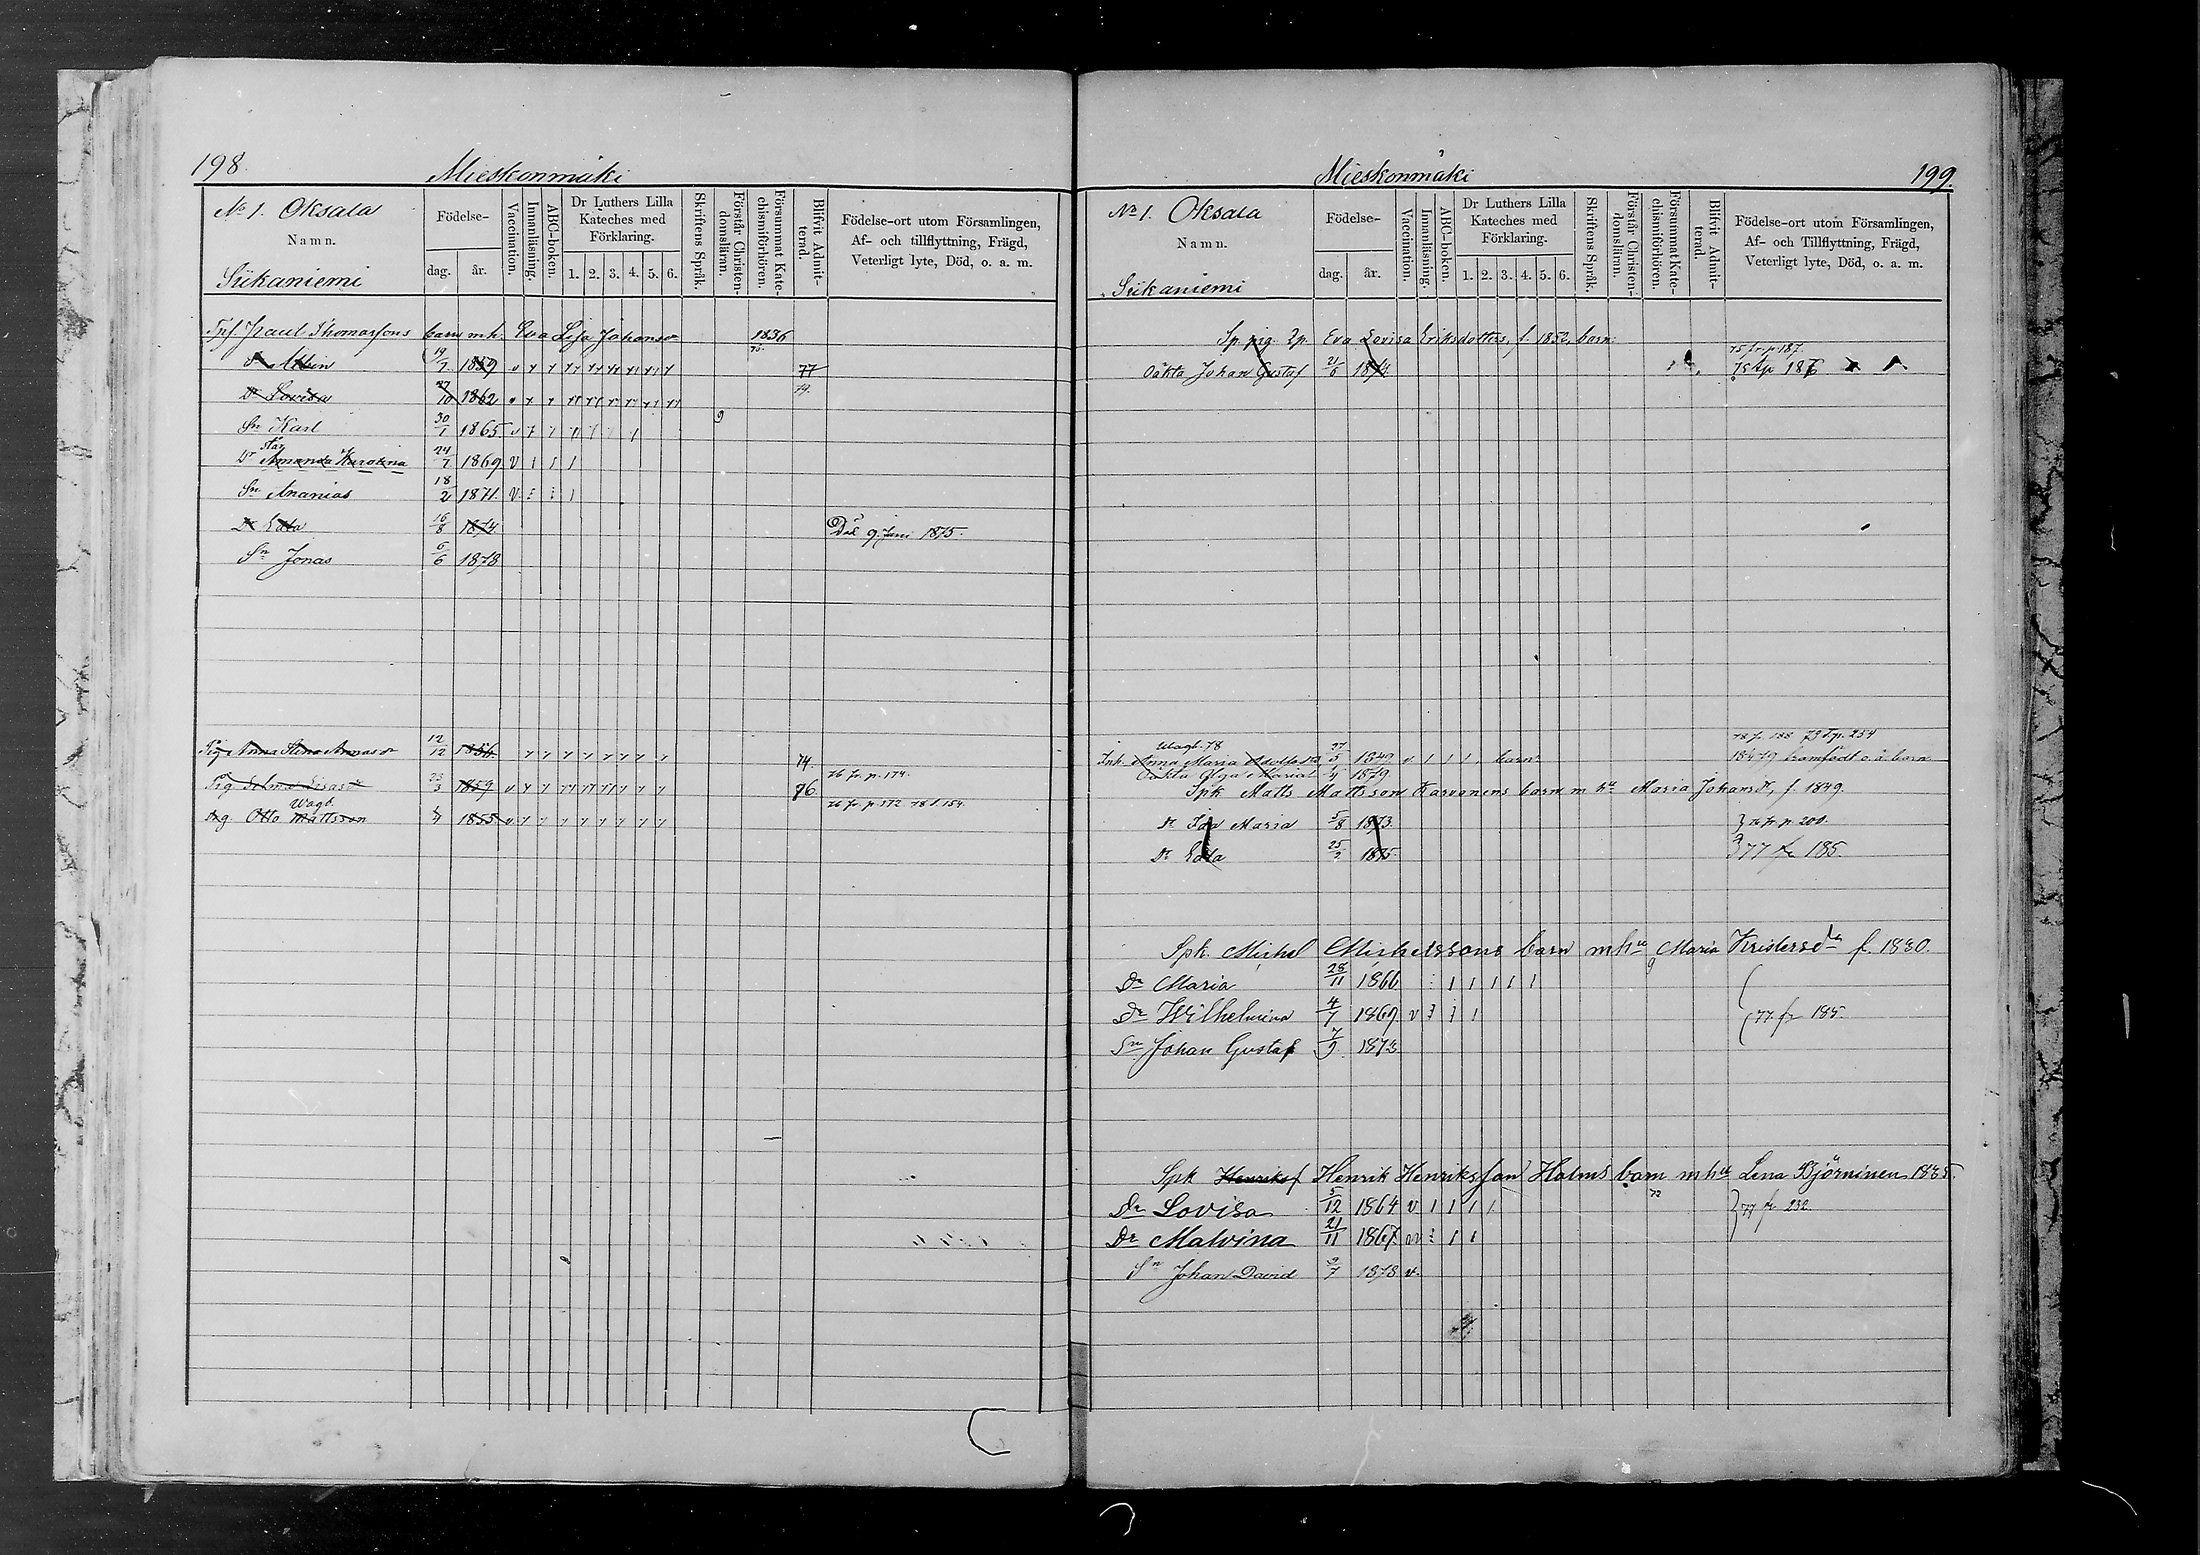 198.
Mieskonmäki
No 1. Oksala
Namn.
Siikaniemi
Födelse-
dag.
år.
Vaccination.
Innanläsning.
ABC-boken.
Dr Luthers Lilla
Kateches med
Förklaring.
1. 2. 3. 4. 5. 6.
Skriftens Språk.
Förstår Christen-
domsläran.
Försummat Kate-
chismiförhören.
Blifvit Admit-
terad.
Födelse-ort utom Församlingen,
Af- och tillflyttning, Frägd,
Veterligt lyte, Död, o. a. m.
Inh Paul Thomassons barn m. h. Eva Lisa Johansdr 1836
Albin 19/7 1859 77
Dr Lovisa 27/10 1862 79.
Sn Karl 30/1 1865 9
Dr Amanda Karolina 24/7 1869
Sn Ananias 18/2 1871
Dr Edla 16/8 1874 Död 9 Juni 1875.
Sn Jonas 6/6 1878
Pig Anna Stina 12/12 1856 74.
Pig Selma 23/3 1859 76 fr. p. 174.
Wagb.
Drg Otto Mattsson 1855 76 fr p 172 78 t 154.
Mieskonmäki
199.
No 1. Oksala
Namn.
Siikaniemi
Födelse-
dag.
år.
Vaccination.
Innanläsning.
ABC-boken.
Dr Luthers Lilla
Kateches med
Förklaring.
1. 2. 3. 4. 5. 6.
Skriftens Språk.
Förstår Christen-
domsläran.
Försummat Kate-
chismiförhören.
Blifvit Admit-
terad.
Födelse-ort utom Församlingen,
Af- och Tillflyttning, Frägd,
Veterligt lyte, Död, o. a. m.
Sp. pig. Eva Lovisa Eriksdotters, f. 1852, barn:
75 fr p 187.
Oäkta Johan Gustaf 21/6 1874
Wagb. 78
Inh. Anna Maria 27/5 1849 barn
Oäkta Olga Maria 1879.
Spk Matts Mattsson Karvonens barn m hu Maria Johansdr, f. 1849.
Dr Ida Maria 5/8 1873. 76 fr p. 200.
Dr Edla 25/2 1875. 77 fr 185.
Spk. Michel Michelssons barn m hu Maria Kristersdr f. 1830.
Dr Maria 28/11 1866
Dr Wilhelmina 4/7 1869 77 fr 185.
Sn Johan Gustaf 7/9 1873
Spk Henrik Henriksson Holms barn m hu Lena Björninen 1835.
Dr Lovisa 5/12 1864 77 fr 232.
Dr Malvina 21/11 1867
Sn Johan David 1878